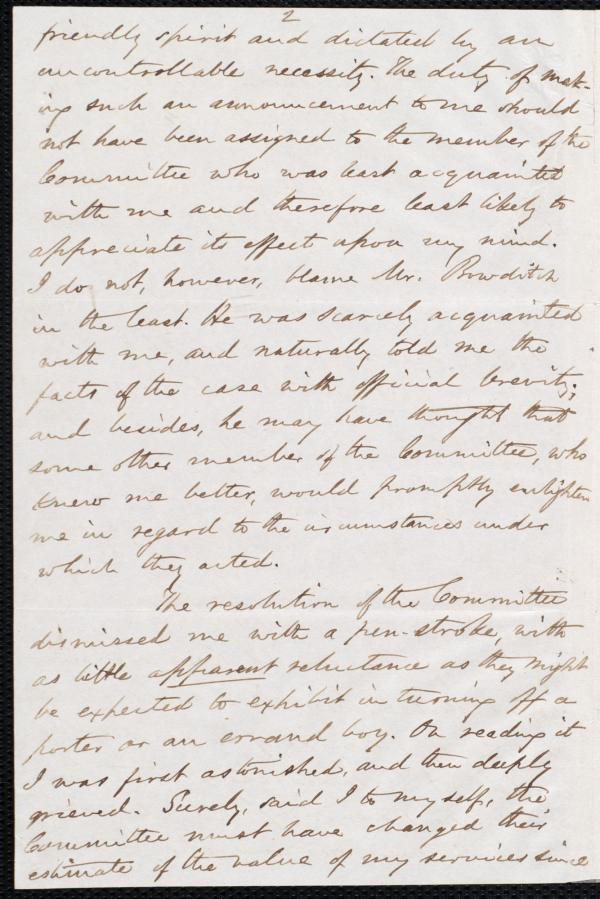 2
friendly spirit and dictated by an
uncontrollable necessity. The duty of mak-
ing such an announcement to me should
not have been assigned to the member of the
Committee who was least acquainted
with me and therefore least likely to
appreciate its effect upon my mind.
I do not, however, blame Mr. Bowditch
in the least. He was scarcely acquainted
with me, and naturally told me the
facts of the case with official brevity;
and besides, he may have thought that
some other member of the Committee, who
knew me better, would promptly enlighten
me in regard to the circumstances under
which they acted.
The resolution of the Committee
dismissed me with a pen-stroke, with
as little apparent reluctance as they might
be expected to exhibit in turning off a
porter or an errand boy. On reading it
I was first astonished, and then deeply
grieved. Surely, said I to myself, the
Committee must have changed their
estimate of the value of my services since